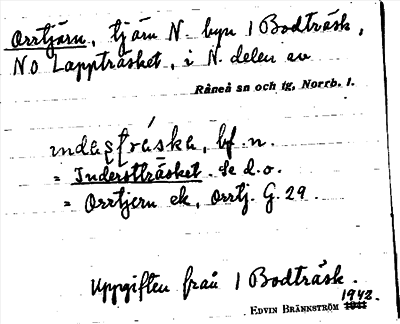 Orrtjärn, tjärn N. byn 1 Bodträsk,
NO Lappträsket, i N. delen av
Råneå sn och tg, Norrb. l.
bf. n.
= Inderstträsket. Se d.o.
= Orrtjern ek, Orrtj. G. 29.
Uppgiften från 1 Bodträsk.
1942.
EDVIN BRÄNNSTRÖM 1941